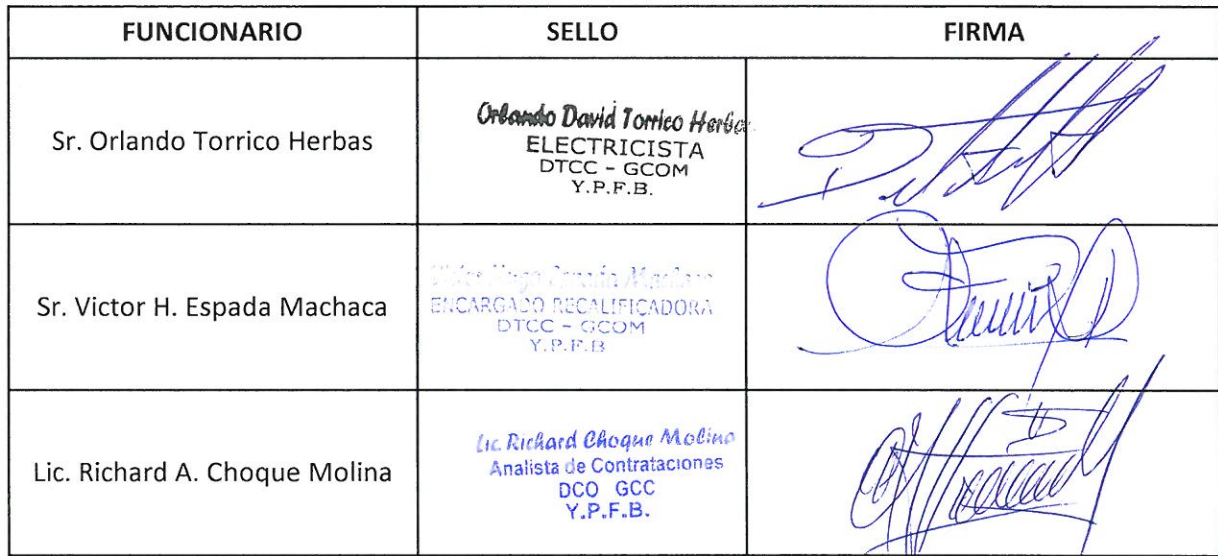 FUNCIONARIO SELLO FIRMA
Sr. Orlando Torrico Herbas
Orlando David Torrico Herbas
ELECTRICISTA
DTCC - GCOM
Y.P.F.B.
Sr. Victor H. Espada Machaca
Victor Hugo Espada Machaca
ENCARGADO RECALIFICADORA
DTCC - GCOM
Y.P.F.B
Lic. Richard A. Choque Molina
Lic. Richard Choque Molina
Analista de Contrataciones
DCO GCC
Y.P.F.B.